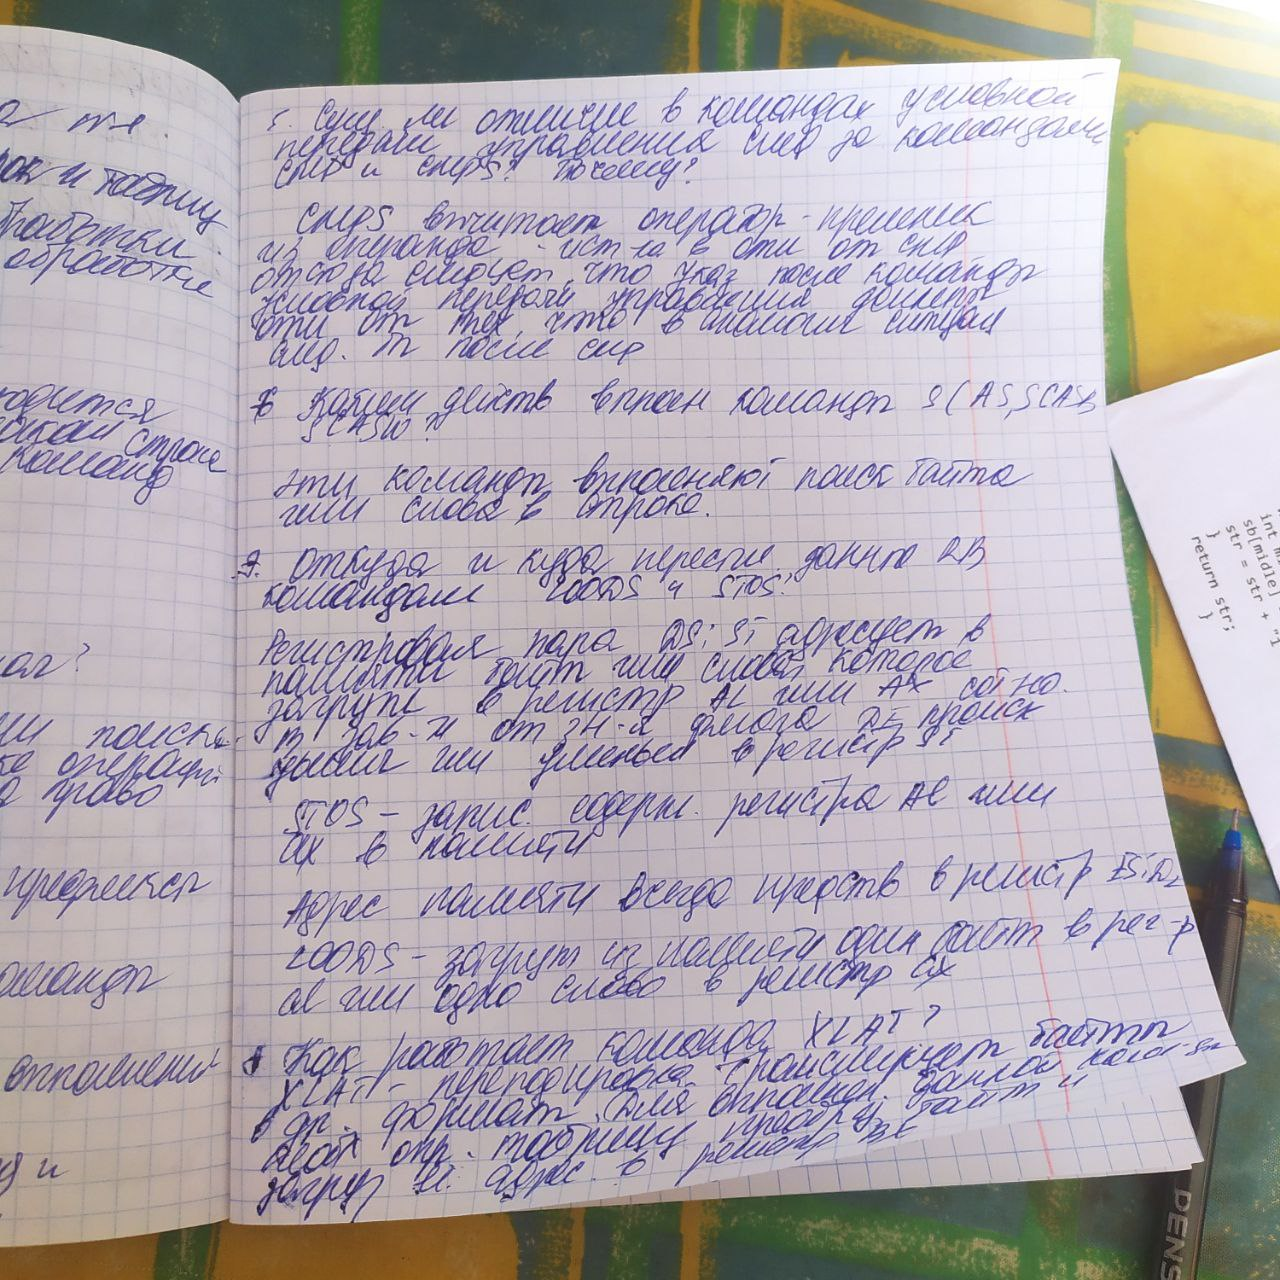 а те.
рок и таблиц
обработки
обработке
одится
строке
команд
поиска
операций
право
префикса
команды
выполнения
и
5. Сущ ли отличие в командах условной
передачи управления след за командами
CMP и CMPS? Почему?
CMPS вычитает оператор - приемник
из операнда - ист-ка в отл от CMP
отсюда следует, что указ после команды
условной передачи управления должны
отл от тех, что в аналогич ситуац
после cmp
6 Какие действ выполн команды S(AS, SCASB
SCASW?
Эти команды выполняют поиск байта
или слова в строке.
7. Откуда и куда пересыл. данные
командами LODS и STOS?
Регистровая пара DS:SI адресует в
памяти байт или слово, которое
загруж в регистр AL или AX
в зав-и от зн-я флага DF происх
или уменьш в регистр SI
STOS - запис. содерж. регистра AL или
ax в памяти
Адрес памяти всегда предств в регистр
LODS - загруж из памяти один байт в рег-р
al или одно слово в регистр ax
8 Как работает команда XLAT?
XLAT - перекодировка. Транслирует байты
в др. формат. Для выполнен. данной
опр. таблицу байт и
загруз адрес. в регистр
int
sb[midle]
str = str +
}
return str;
}
PENS